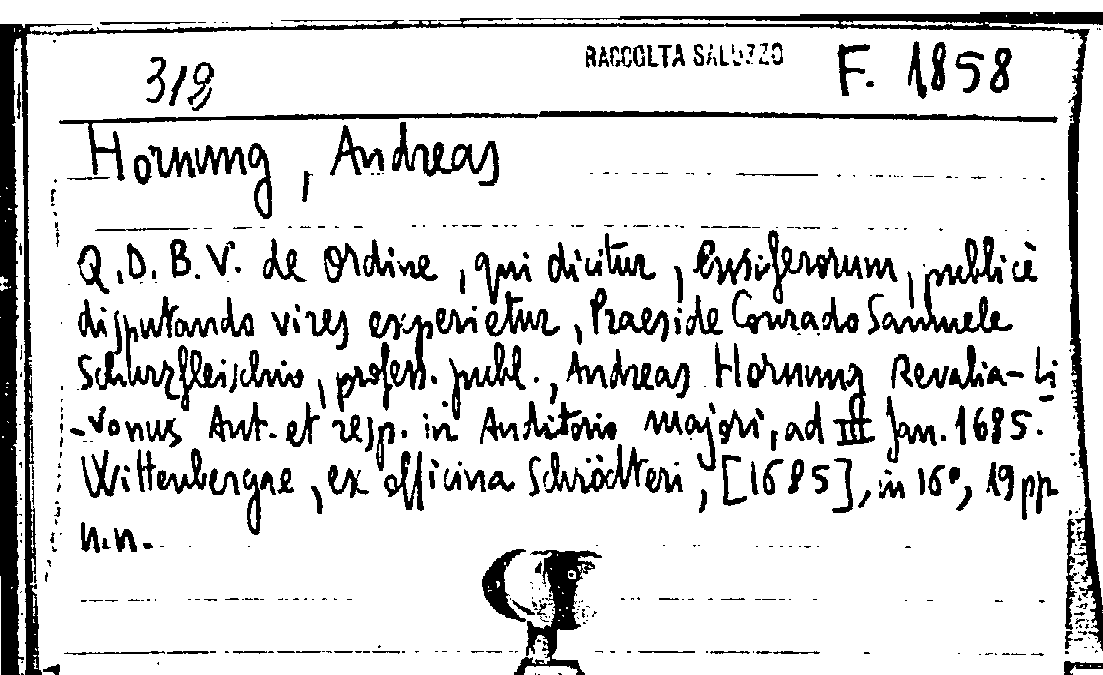 318 RACCOLTA SALUZZO F. 1858
Hornung, Andreas
Q.D.B.V. de Ordine, qui dicitur, Ensiferorum, publicè
disputando vires experietur, Praeside Conrado Samuele
Schurzfleischio, profess. publ., Andreas Hornung Revalia-Li
-vonus Aut. et resp. in Auditorio majori, ad III Jan. 1685.
Wittenbergae, ex officina Schrödteri, [1685], in 16°, 19 pp.
n.n.